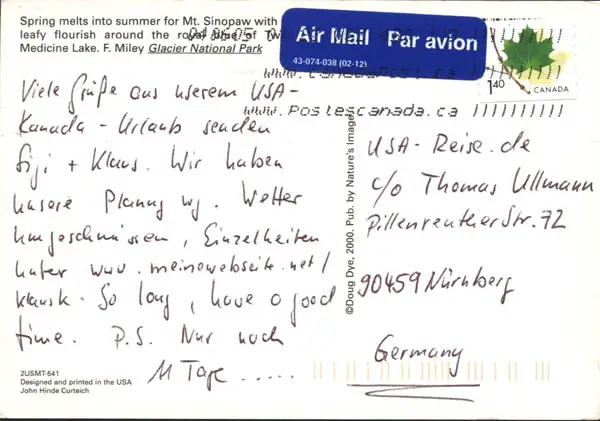 Spring melts into summer for Mt. Sinopaw with
leafy flourish around the royal blue of Two
Medicine Lake. F. Miley Glacier National Park
Air Mail Par avion
43-074-038 (02-12)
1.40
CANADA
www.postescanada.ca
Viele Grüße aus unserem USA-
Kanada-Urlaub senden
Sigi + Klaus. Wir haben
unsere Planung wg. Wetter
umgeschmissen, Einzelheiten
unter www.meinewebseite.net/
klausk. So long, have a good
time. P.S. Nur noch
11 Tage.....
©Doug Dye, 2000. Pub. by Nature's Images
USA-Reise.de
c/o Thomas Ullmann
Pillenreuther Str. 72
90459 Nürnberg
Germany
2USMT-541
Designed and printed in the USA
John Hinde Curteich